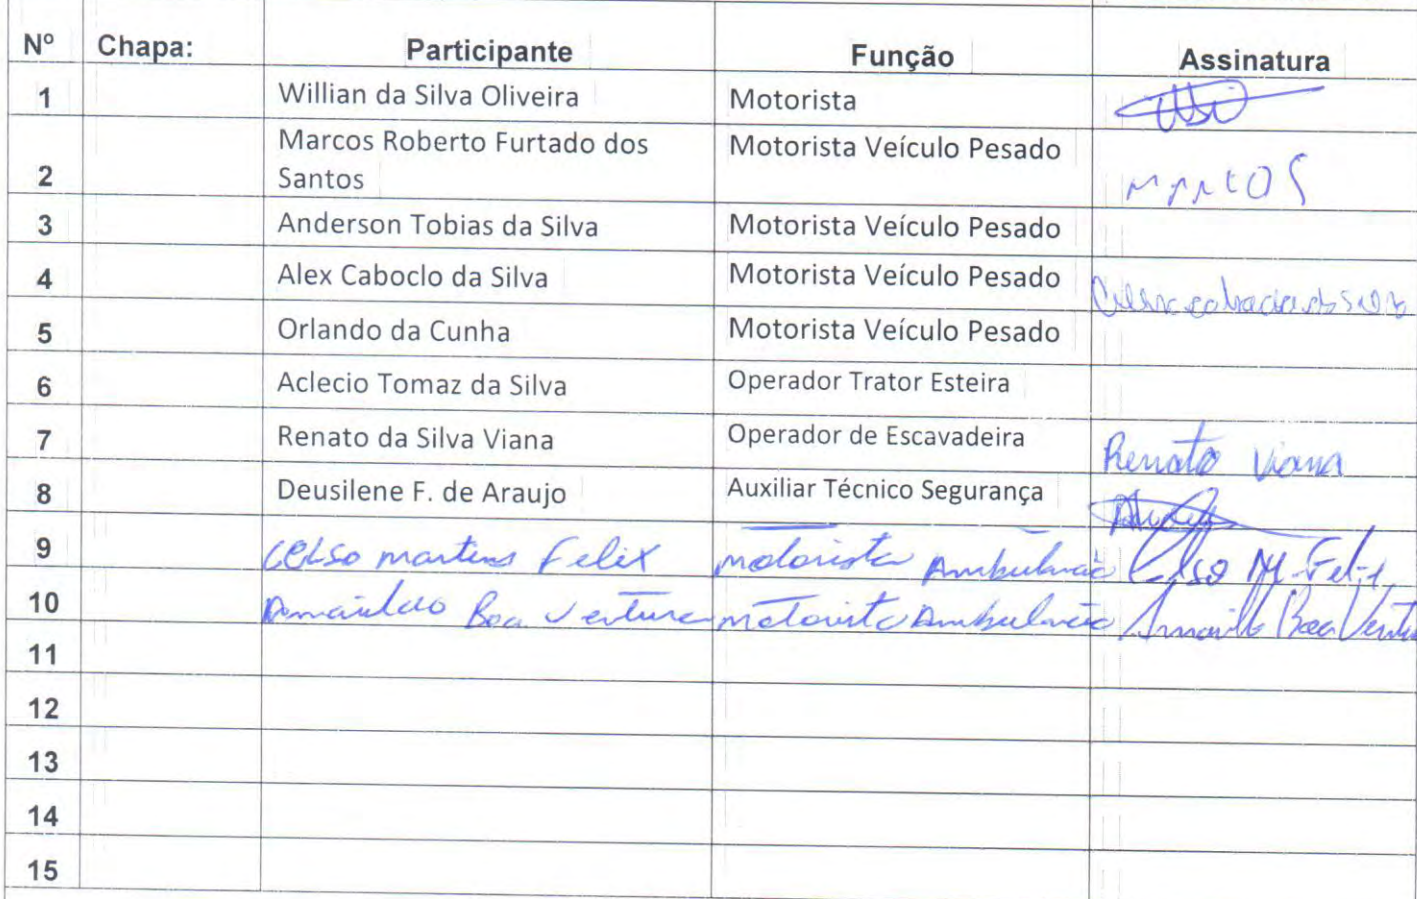 Nº Chapa: Participante Função Assinatura
1 Willian da Silva Oliveira Motorista
2 Marcos Roberto Furtado dos Santos Motorista Veículo Pesado Marcos
3 Anderson Tobias da Silva Motorista Veículo Pesado
4 Alex Caboclo da Silva Motorista Veículo Pesado
5 Orlando da Cunha Motorista Veículo Pesado
6 Aclecio Tomaz da Silva Operador Trator Esteira
7 Renato da Silva Viana Operador de Escavadeira Renato Viana
8 Deusilene F. de Araujo Auxiliar Técnico Segurança
9 Celso martins Felix motorista Celso M. Felix
10 Boa Ventura motorista Boa Ventu
11
12
13
14
15